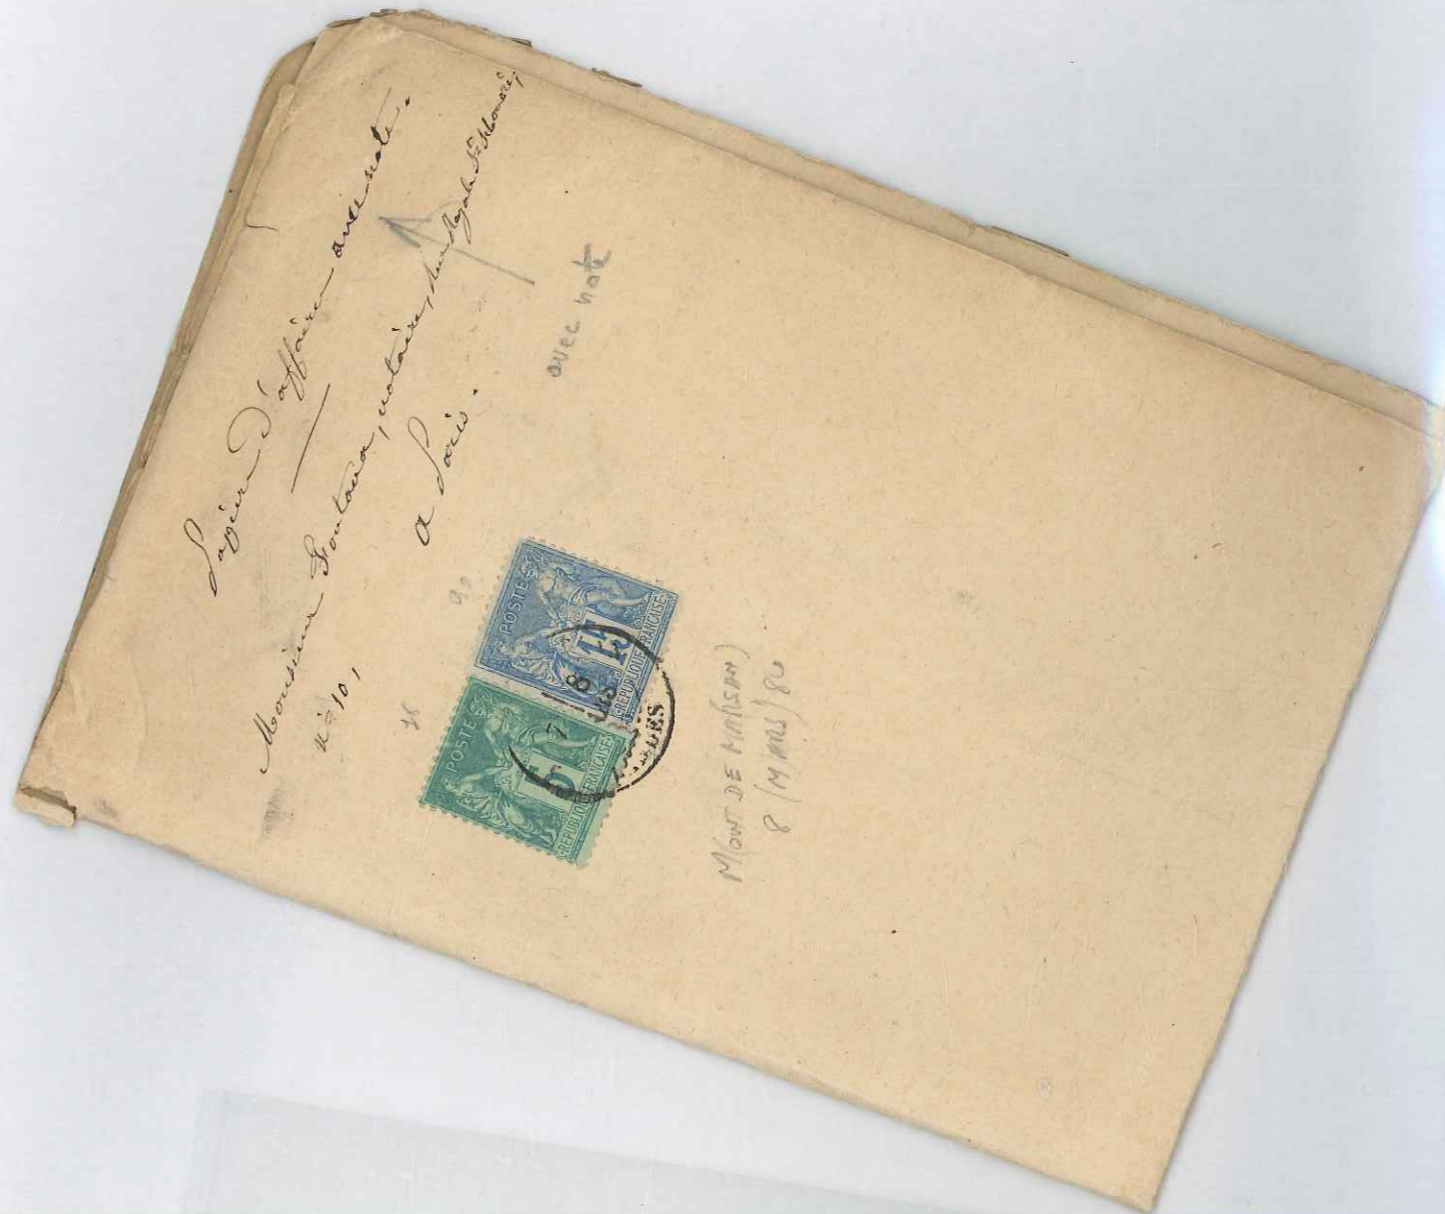 Papiers d'affaires avec note.
Monsieur Fontana, notaire, Rue Royale St Honoré,
n° 10,
à Paris.
avec note
90
POSTES
15
REPUBLIQUE FRANCAISE
POSTES
5
REPUBLIQUE FRANCAISE
7
8
MARS
M(ONT DE MARSAN)
8 (MARS) 80